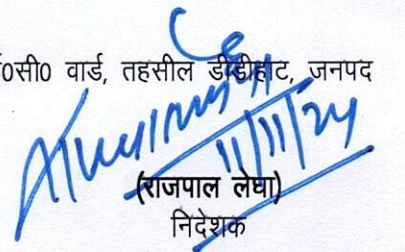 0सी0 वार्ड, तहसील डीडीहाट, जनपद
11/11/24
(राजपाल लेघा)
निदेशक